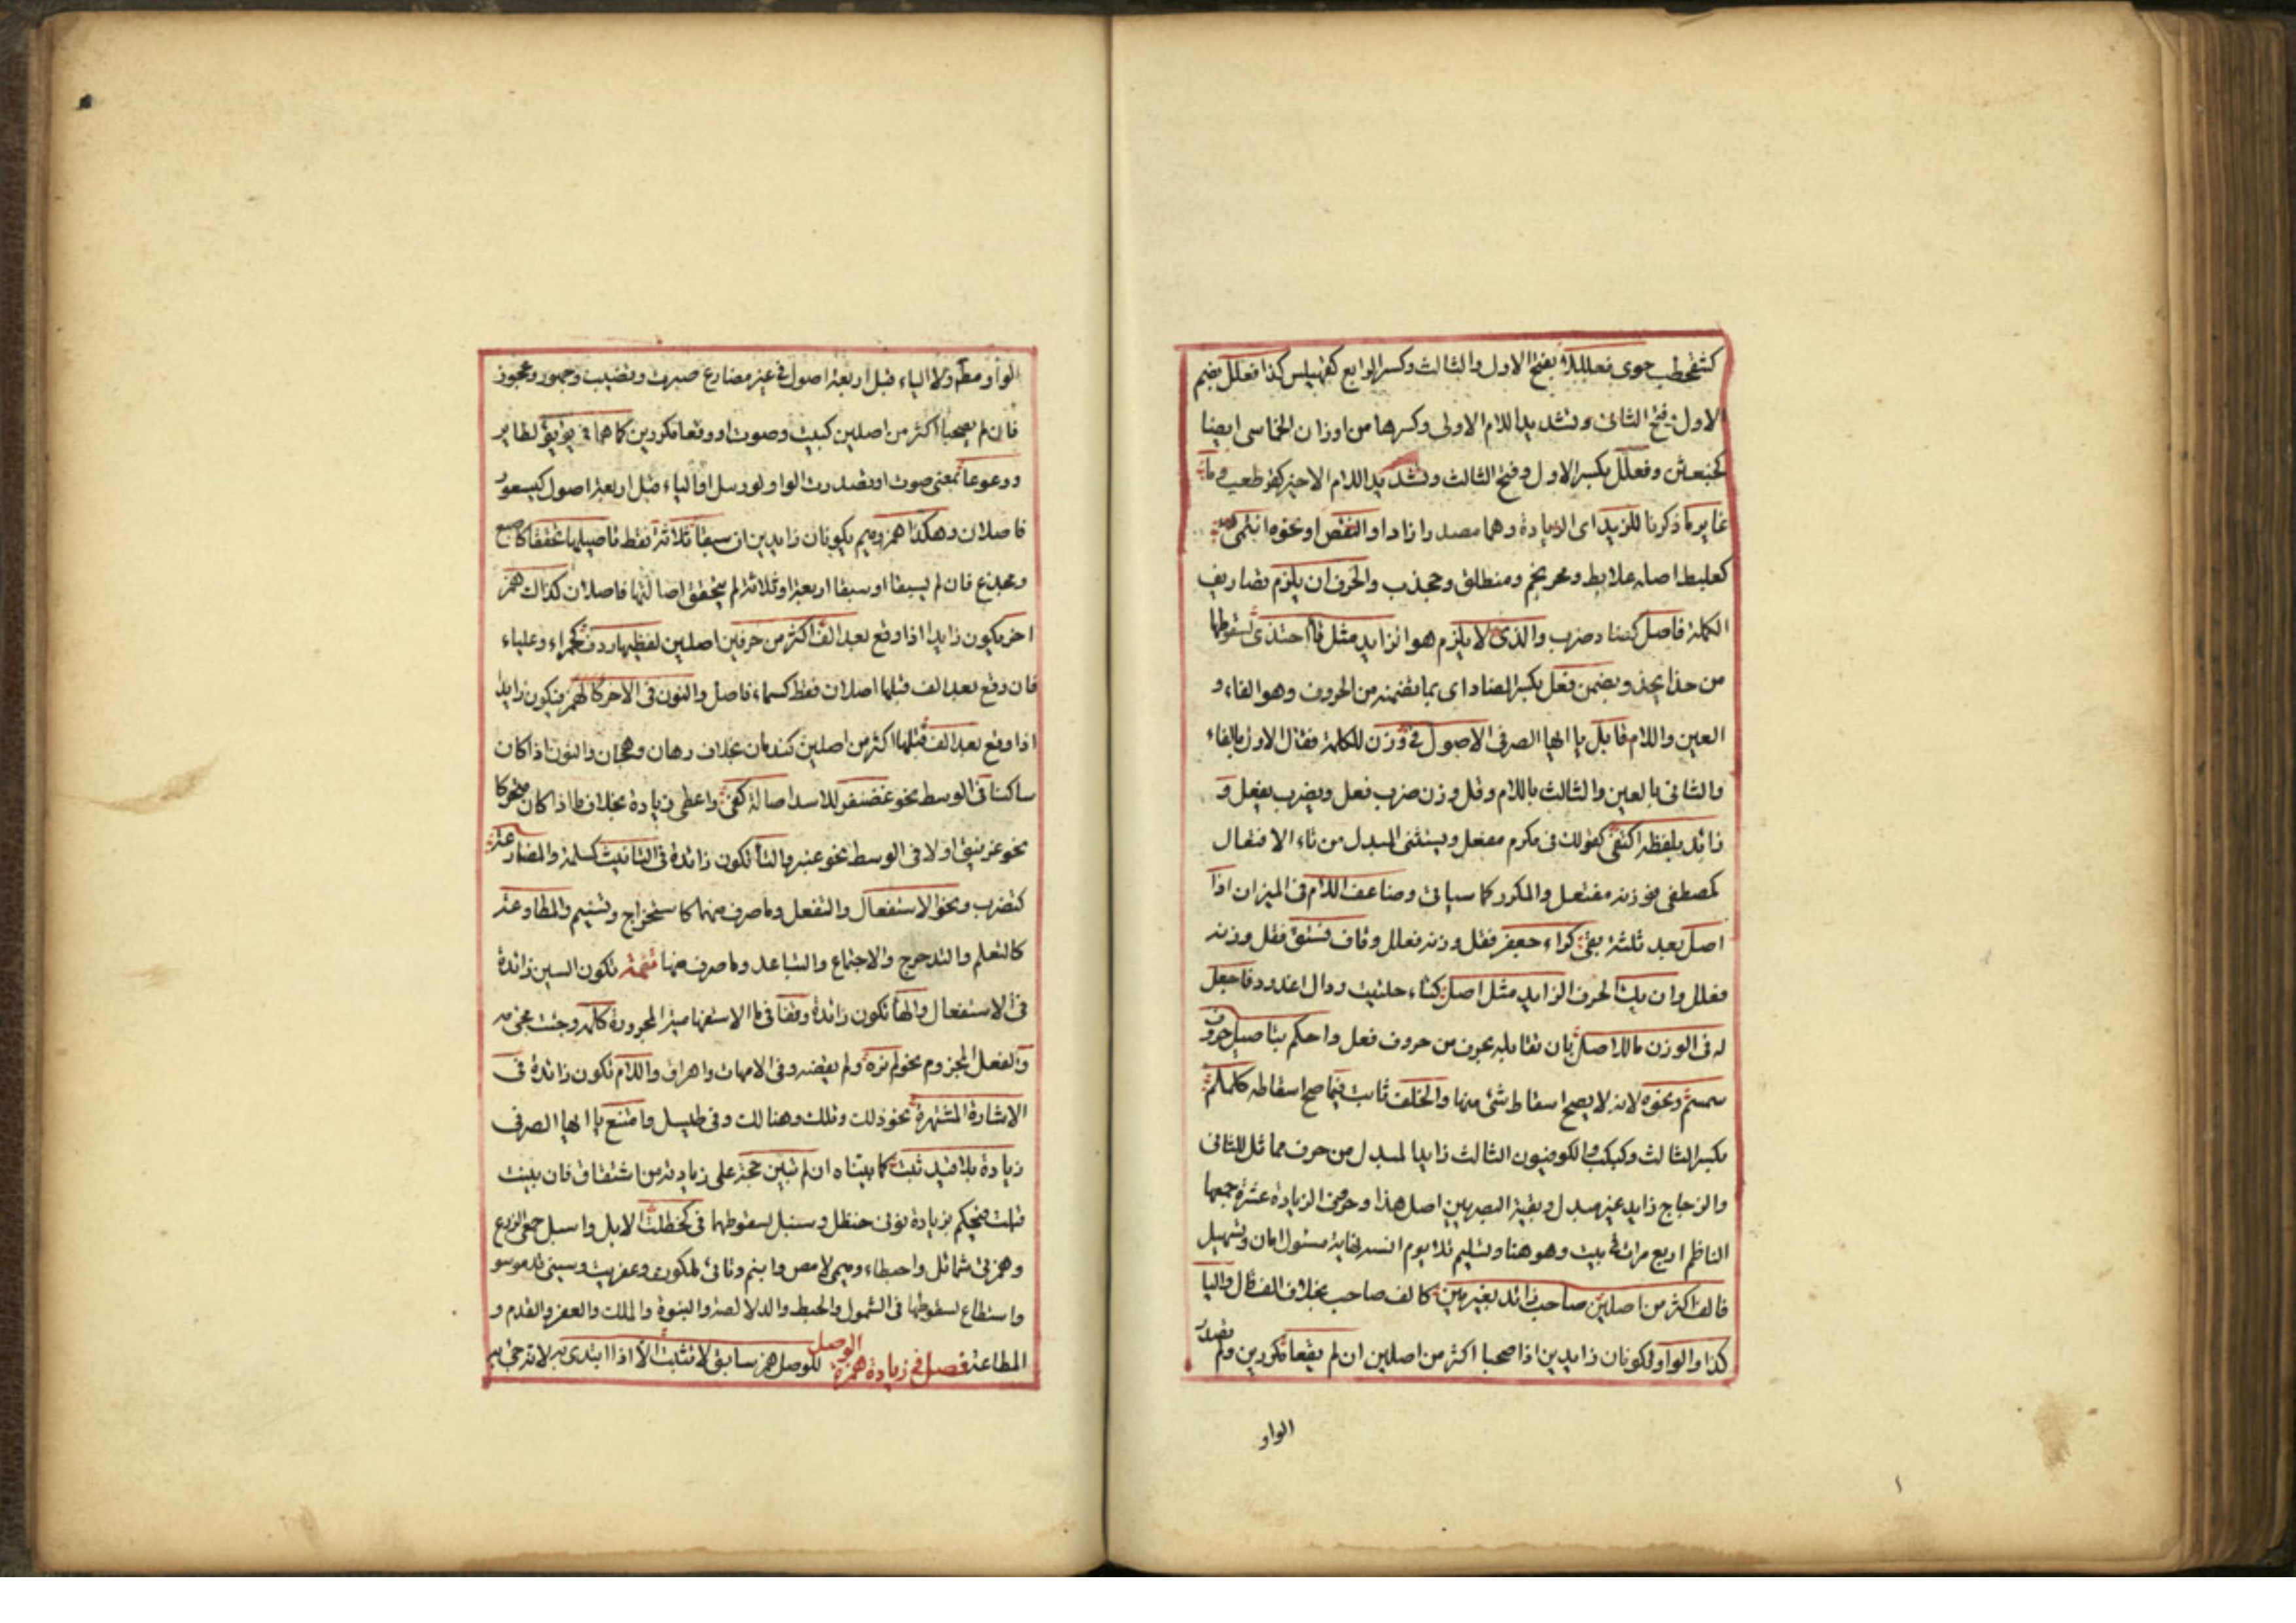 كشفحطب حوى فعلللا بفتح الاول والثالث وكسر الرابع كقهبلس كذا فعلل بضم
الاول فتح الثانى وتشديد اللام الاولى وكسرها من اوزان الخماسى ايضا
كخبعثن وفعلل بكسر الاول وفتح الثالث وتشديد اللام الاخير كقرطعب وما
غاير ما ذكرنا للزيد اى الزيادة وهما مصدر ازاد او النقص او نحوه انتمى
كعلبط اصله علابط ومحرنجم ومنطلق ومجذب والحرف ان يلزم تصاريف
الكلمة فاصل كضاد ضرب والذى لا يلزم هو الزايد مثل تا احتذى لسقوطها
من حذا يحذو بضمن فعل بكسر الضاد اى بما تضمنه من الحروف وهو الفاء و
العين واللام قابل يا ايها الصرفى الاصول فى وزن للكلمة فقال الاول بالفاء
والثانى بالعين والثالث باللام وقل وزن ضرب فعل ويضرب يفعل و
زائد بلفظه اكتفى كقولك فى مكرم مفعل ويستثنى المبدل من تاء الافتعال
كمصطفى فوزنه مفتعل والمكرر كما سياتى وضاعف اللام فى الميزان اذا
اصل بعد ثلثة بقى كراء جعفر فقل وزنه فعلل وقاف فستق فقل وزنه
فعلل وان يك الحرف الزايد مثل اصل كتاء حلتيت ودال اغدودن فاجعل
له فى الوزن ما للاصل بان تقابله بحرف من حروف فعل واحكم بتاصيل حروف
سمسم ونحوه لانه لا يصح اسقاط شئ منها والخلف ثابت فيما صح اسقاطه كلملم
بكسر الثالث وكبكب والكوفيون الثالث زايدا لمبدل من حرف مماثل للثانى
والزجاج زايد غير مبدل وبقية البصريين اصل هذا وحروف الزيادة عشرة جمعها
الناظم اربع مرات فى بيت وهو هنا وتسليم تلا يوم انسه نهاية مسئول امان وتسهيل
فالف اكثر من اصلين صاحب زائد بغير مين كالف صاحب بخلاف الف قال واليا
كذا والواو يكونان زايدين اذا صحبا اكثر من اصلين ان لم يقعا مكررين ولم تصدر
الواو
الواو مطم ولا الياء قبل اربعة اصول فى غير مضارع صيرف وقضيب وجهور وعجوز
فان لم يصحبا اكثر من اصلين كبيت وصوت او وقعا مكررين كما هما فى يؤيؤ لطاير
ووعوعا بمعنى صوت او تصدرت الواو لورنتل او الياء قبل اربعة اصول كيستعور
فاصلان وهكذا همز وميم يكونان زايدين ان سبقا ثلاثة فقط تاصيلها تحققا كاصبع
ومجذع فان لم يسبقا او سبقا اربعة او ثلاثة لم يتحقق اصالتها فاصلان كذاك همز
اخر يكون زايدا اذا وقع بعد الف اكثر من حرفين اصليين لفظها ردف كحمراء وعلباء
فان وقع بعد الف قبلها اصلان فقط كسماء فاصل والنون فى الاخر كالهمز فيكون زايدا
اذا وقع بعد الف قبلها اكثر من اصلين كندمان بخلاف رهان وهجان والنون اذا كان
ساكنا فى الوسط نحو غضنفر للاسد اصالة كفى واعطى زيادة بخلاف ما اذا كان متحركا
نحو غرنيق اولا فى الوسط نحو عنبر والتا تكون زائدة فى التانيث كسلمة والمضارعة
كتضرب ونحو الاستفعال والتفعل وما صرف منهما كاستخراج وتسنيم والمطاوعة
كالتعلم والتدحرج والاجتماع والتباعد وما صرف منها تتمة تكون السين زائدة
فى الاستفعال والها تكون زائدة وقفا فى ما الاستفهامية المجرورة كلمه وجئت مجئ مه
والفعل المجزوم نحو لم تره ولم يقضه وفى الامهات واهراق واللام تكون زائدة فى
الاشارة المشتهرة نحو ذلك وتلك وهنالك وفى طيسل وامنع يا ايها الصرفى
زيادة بلا قيد ثبت كما بيناه ان لم تبين حجة على زيادته من اشتقاق فان بينت
قبلت فيحكم بزيادة نونى حنظل وسنبل لسقوطهما فى كحظلت الابل واسبل الزرع
وهمزتى شمائل واحبطاء وميمى دلامص وابنم وتائى ملكوت وعفريت وسينى قدموس و
واستطاع لسقوطها فى الشمول والحبط والدلاصة والبنوة والملك والعفر والقدم و
المطاعة فصل فى زيادة همزة الوصل للوصل همز سابق لا يثبت الا اذا ابتدى به لا تدرج به